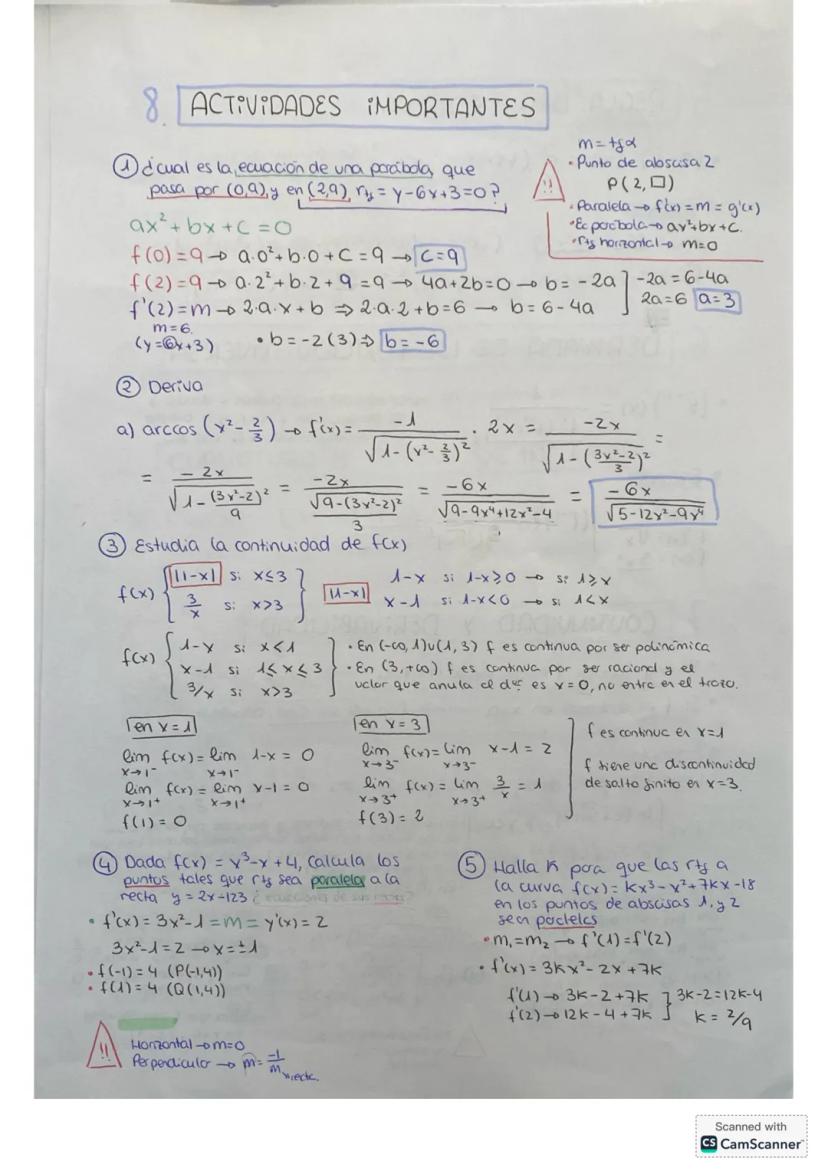 8. ACTIVIDADES IMPORTANTES
① ¿cual es la ecuación de una parábola, que
pasa por (0,9), y en (2,9), rtg = y-6x+3=0?
m = tgα
• Punto de abscisa 2
P(2,□)
• Paralela → f'(x)=m=g'(x)
• Ec parábola → ax²+bx+c.
• rtg horizontal → m=0
!!
ax²+bx+c=0
f(0)=9 → a·0²+b·0+c=9 → c=9
f(2)=9 → a·2²+b·2+9=9 → 4a+2b=0 → b=-2a ] -2a=6-4a
f'(2)=m → 2·a·x+b ⇒ 2·a·2+b=6 → b=6-4a ] 2a=6 a=3
m=6
(y=6x+3)
• b=-2(3) ⇒ b=-6
② Deriva
a) arccos (x²-2/3) → f'(x) = -1/√(1-(x²-2/3)²) · 2x = -2x/√(1-((3x²-2)/3)²) =
= -2x/√(1-(3x²-2)²/9) = -2x/(√(9-(3x²-2)²)/3) = -6x/√(9-9x⁴+12x²-4) = -6x/√(5-12x²-9x⁴)
③ Estudia la continuidad de f(x)
f(x) { |1-x| si x≤3
3/x si x>3 }
|1-x| 1-x si 1-x≥0 → si 1≥x
x-1 si 1-x<0 → si 1<x
f(x) { 1-x si x<1
x-1 si 1≤x≤3
3/x si x>3
• En (-∞,1)∪(1,3) f es continua por ser polinómica
• En (3,+∞) f es continua por ser racional y el
valor que anula el dᵒʳ es x=0, no entra en el trozo.
en x=1
lim f(x) = lim 1-x = 0
x→1⁻ x→1⁻
lim f(x) = lim x-1 = 0
x→1⁺ x→1⁺
f(1)=0
en x=3
lim f(x) = lim x-1 = 2
x→3⁻ x→3⁻
lim f(x) = lim 3/x = 1
x→3⁺ x→3⁺
f(3)=2
f es continua en x=1
f tiene una discontinuidad
de salto finito en x=3.
④ Dada f(x) = x³-x+4, calcula los
puntos tales que rtg sea paralela a la
recta y=2x-123
• f'(x)=3x²-1=m=y'(x)=2
3x²-1=2 → x=±1
• f(-1)=4 (P(-1,4))
• f(1)=4 (Q(1,4))
!!
Horizontal → m=0
Perpendicular → m = -1/m recta.
⑤ Halla K para que las rtg a
la curva f(x)=kx³-x²+7kx-18
en los puntos de abscisas 1, y 2
sean paralelas
• m₁=m₂ → f'(1)=f'(2)
• f'(x)=3kx²-2x+7k
f'(1) → 3k-2+7k ] 3k-2=12k-4
f'(2) → 12k-4+7k ] k=2/9
Scanned with
CS CamScanner